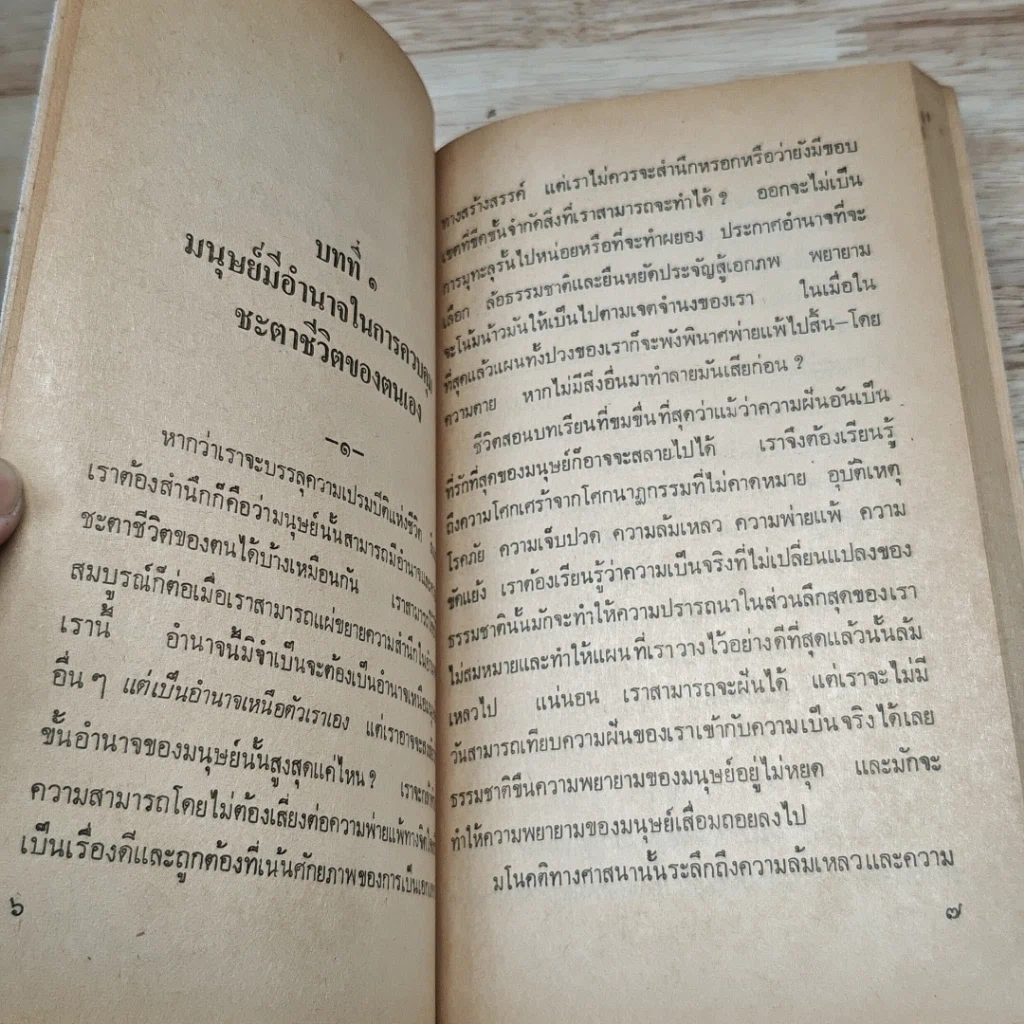 บทที่ ๑
มนุษย์มีอำนาจในการควบคุม
ชะตาชีวิตของตนเอง
–๑–
หากว่าเราจะบรรลุความเปรมปีติแห่งชีวิต
เราต้องสำนึกก็คือว่ามนุษย์นั้นสามารถมีอำนาจ
ชะตาชีวิตของตนได้บ้างเหมือนกัน เราสามารถ
สมบูรณ์ก็ต่อเมื่อเราสามารถแผ่ขยายความสำนึกใน
เรานี้ อำนาจนี้มิจำเป็นจะต้องเป็นอำนาจเหนือ
อื่น ๆ แต่เป็นอำนาจเหนือตัวเราเอง แต่เราอาจจะ
ขั้นอำนาจของมนุษย์นั้นสูงสุดแค่ไหน ? เราจะ
ความสามารถโดยไม่ต้องเสี่ยงต่อความพ่ายแพ้ทาง
เป็นเรื่องดีและถูกต้องที่เน้นศักยภาพของการเป็น
๖
ทางสร้างสรรค์ แต่เราไม่ควรจะสำนึกหรอกหรือว่ายังมีขอบ
เขตที่ขีดชั้นจำกัดสิ่งที่เราสามารถจะทำได้ ? ออกจะไม่เป็น
การมุทะลุรั้นไปหน่อยหรือที่จะทำผยอง ประกาศอำนาจที่จะ
เลือก ล้อธรรมชาติและยืนหยัดประจัญสู้เอกภพ พยายาม
จะโน้มน้าวมันให้เป็นไปตามเจตจำนงของเรา ในเมื่อใน
ที่สุดแล้วแผนทั้งปวงของเราก็จะพังพินาศพ่ายแพ้ไปสิ้น–โดย
ความตาย หากไม่มีสิ่งอื่นมาทำลายมันเสียก่อน ?
ชีวิตสอนบทเรียนที่ขมขื่นที่สุดว่าแม้ว่าความฝันอันเป็น
ที่รักที่สุดของมนุษย์ก็อาจจะสลายไปได้ เราจึงต้องเรียนรู้
ถึงความโศกเศร้าจากโศกนาฏกรรมที่ไม่คาดหมาย อุบัติเหตุ
โรคภัย ความเจ็บปวด ความล้มเหลว ความพ่ายแพ้ ความ
ขัดแย้ง เราต้องเรียนรู้ว่าความเป็นจริงที่ไม่เปลี่ยนแปลงของ
ธรรมชาตินั้นมักจะทำให้ความปรารถนาในส่วนลึกสุดของเรา
ไม่สมหมายและทำให้แผนที่เราวางไว้อย่างดีที่สุดแล้วนั้นล้ม
เหลวไป แน่นอน เราสามารถจะฝันได้ แต่เราจะไม่มี
วันสามารถเทียบความฝันของเราเข้ากับความเป็นจริงได้เลย
ธรรมชาติขืนความพยายามของมนุษย์อยู่ไม่หยุด และมักจะ
ทำให้ความพยายามของมนุษย์เสื่อมถอยลงไป
มโนคติทางศาสนานั้นระลึกถึงความล้มเหลวและความ
๗